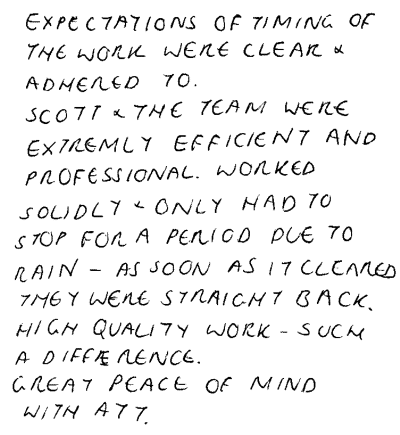 EXPECTATIONS OF TIMING OF
THE WORK WERE CLEAR &
ADHERED TO.
SCOTT & THE TEAM WERE
EXTREMLY EFFICIENT AND
PROFESSIONAL. WORKED
SOLIDLY & ONLY HAD TO
STOP FOR A PERIOD DUE TO
RAIN - AS SOON AS IT CLEARED
THEY WERE STRAIGHT BACK.
HIGH QUALITY WORK - SUCH
A DIFFERENCE.
GREAT PEACE OF MIND
WITH ATT.